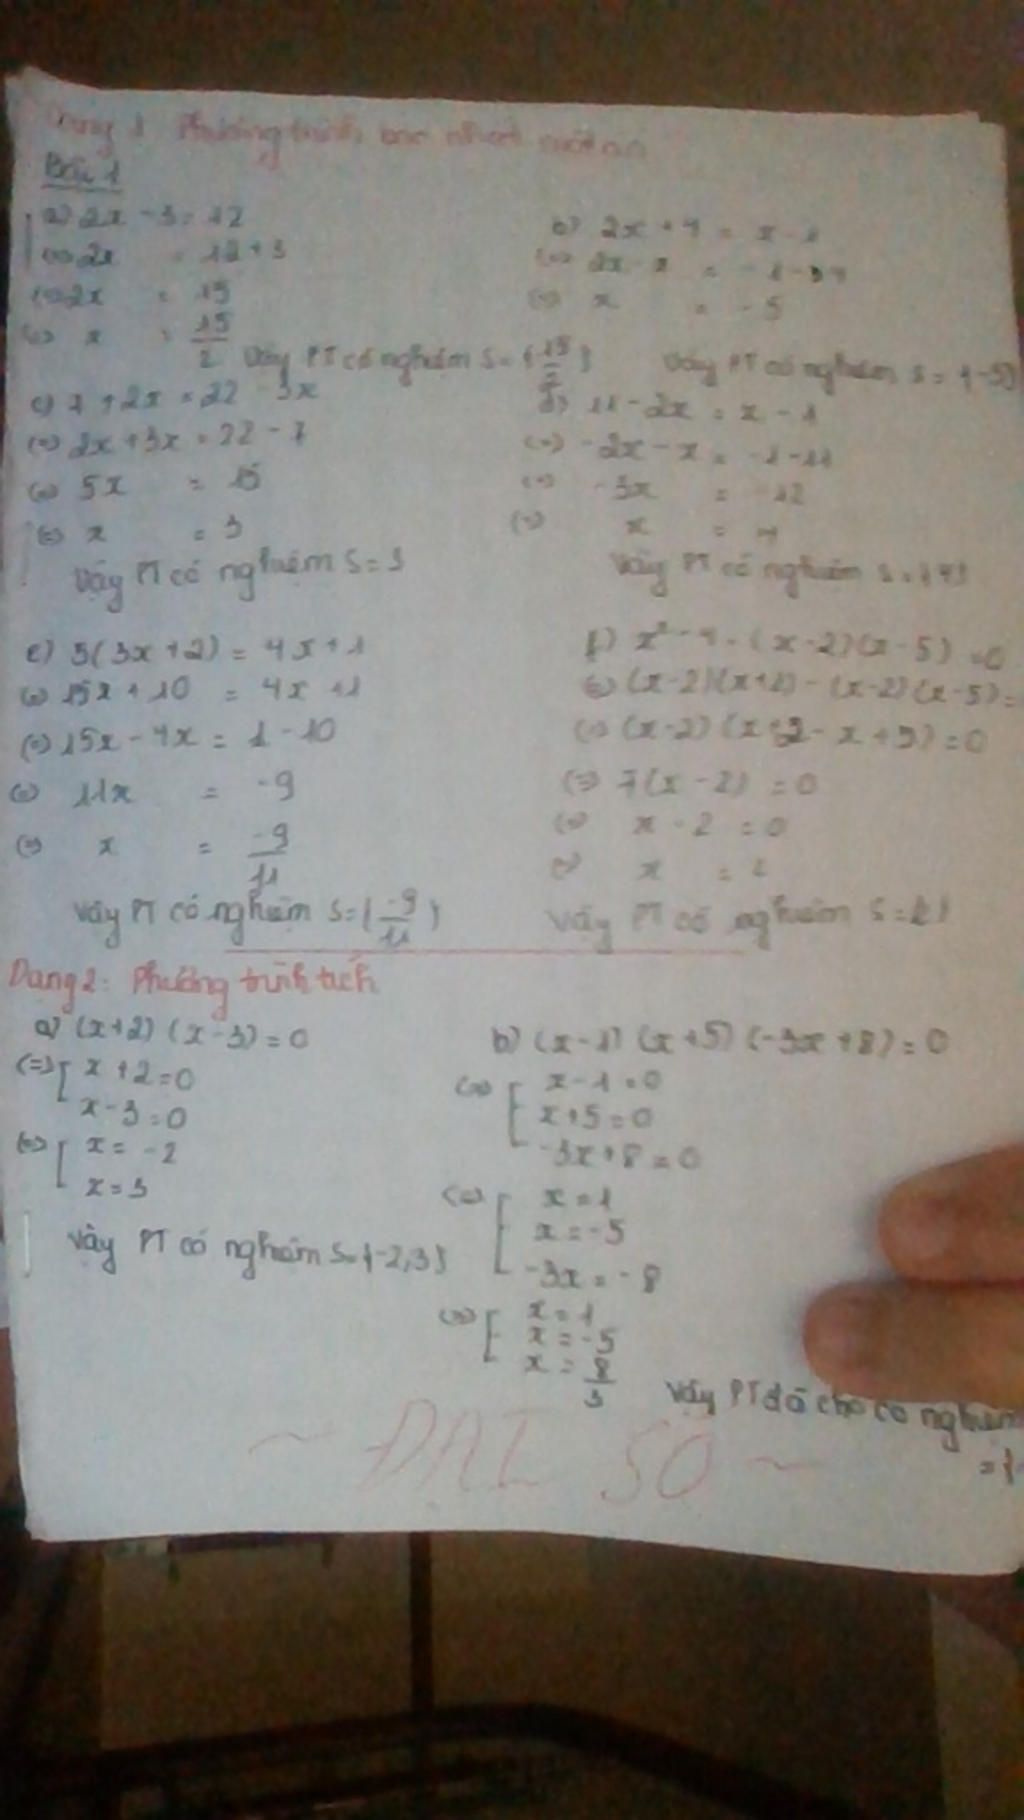 Dạng 1 Phương trình bậc nhất một ẩn
Bài 1
a) 2x - 3 = 12
(=) 2x = 12 + 3
(=) 2x = 15
(=) x = 15/2
Vậy PT có nghiệm S = {15/2}
b) 2x + 4 = x - 1
(=) 2x - x = -1 - 4
(=) x = -5
Vậy PT có nghiệm S = {-5}
c) 7 + 2x = 22 - 3x
(=) 2x + 3x = 22 - 7
(=) 5x = 15
(=) x = 3
Vậy PT có nghiệm S = 3
d) 11 - 2x = x - 1
(=) -2x - x = -1 - 11
(=) -3x = -12
(=) x = 4
Vậy PT có nghiệm S = {4}
e) 5(3x + 2) = 4x + 1
(=) 15x + 10 = 4x + 1
(=) 15x - 4x = 1 - 10
(=) 11x = -9
(=) x = -9/11
Vậy PT có nghiệm S = {-9/11}
f) x² - 4 - (x - 2)(x - 5) = 0
(=) (x - 2)(x + 2) - (x - 2)(x - 5) =
(=) (x - 2)(x + 2 - x + 5) = 0
(=) 7(x - 2) = 0
(=) x - 2 = 0
(=) x = 2
Vậy PT có nghiệm S = {2}
Dạng 2: Phương trình tích
a) (x + 2)(x - 3) = 0
(=) [ x + 2 = 0
x - 3 = 0
(=) [ x = -2
x = 3
Vậy PT có nghiệm S = {-2, 3}
b) (x - 1)(x + 5)(-3x + 8) = 0
(=) [ x - 1 = 0
x + 5 = 0
-3x + 8 = 0
(=) [ x = 1
x = -5
-3x = -8
(=) [ x = 1
x = -5
x = 8/3
Vậy PT đã cho có nghiệm
= {
~ ĐẠI SỐ ~